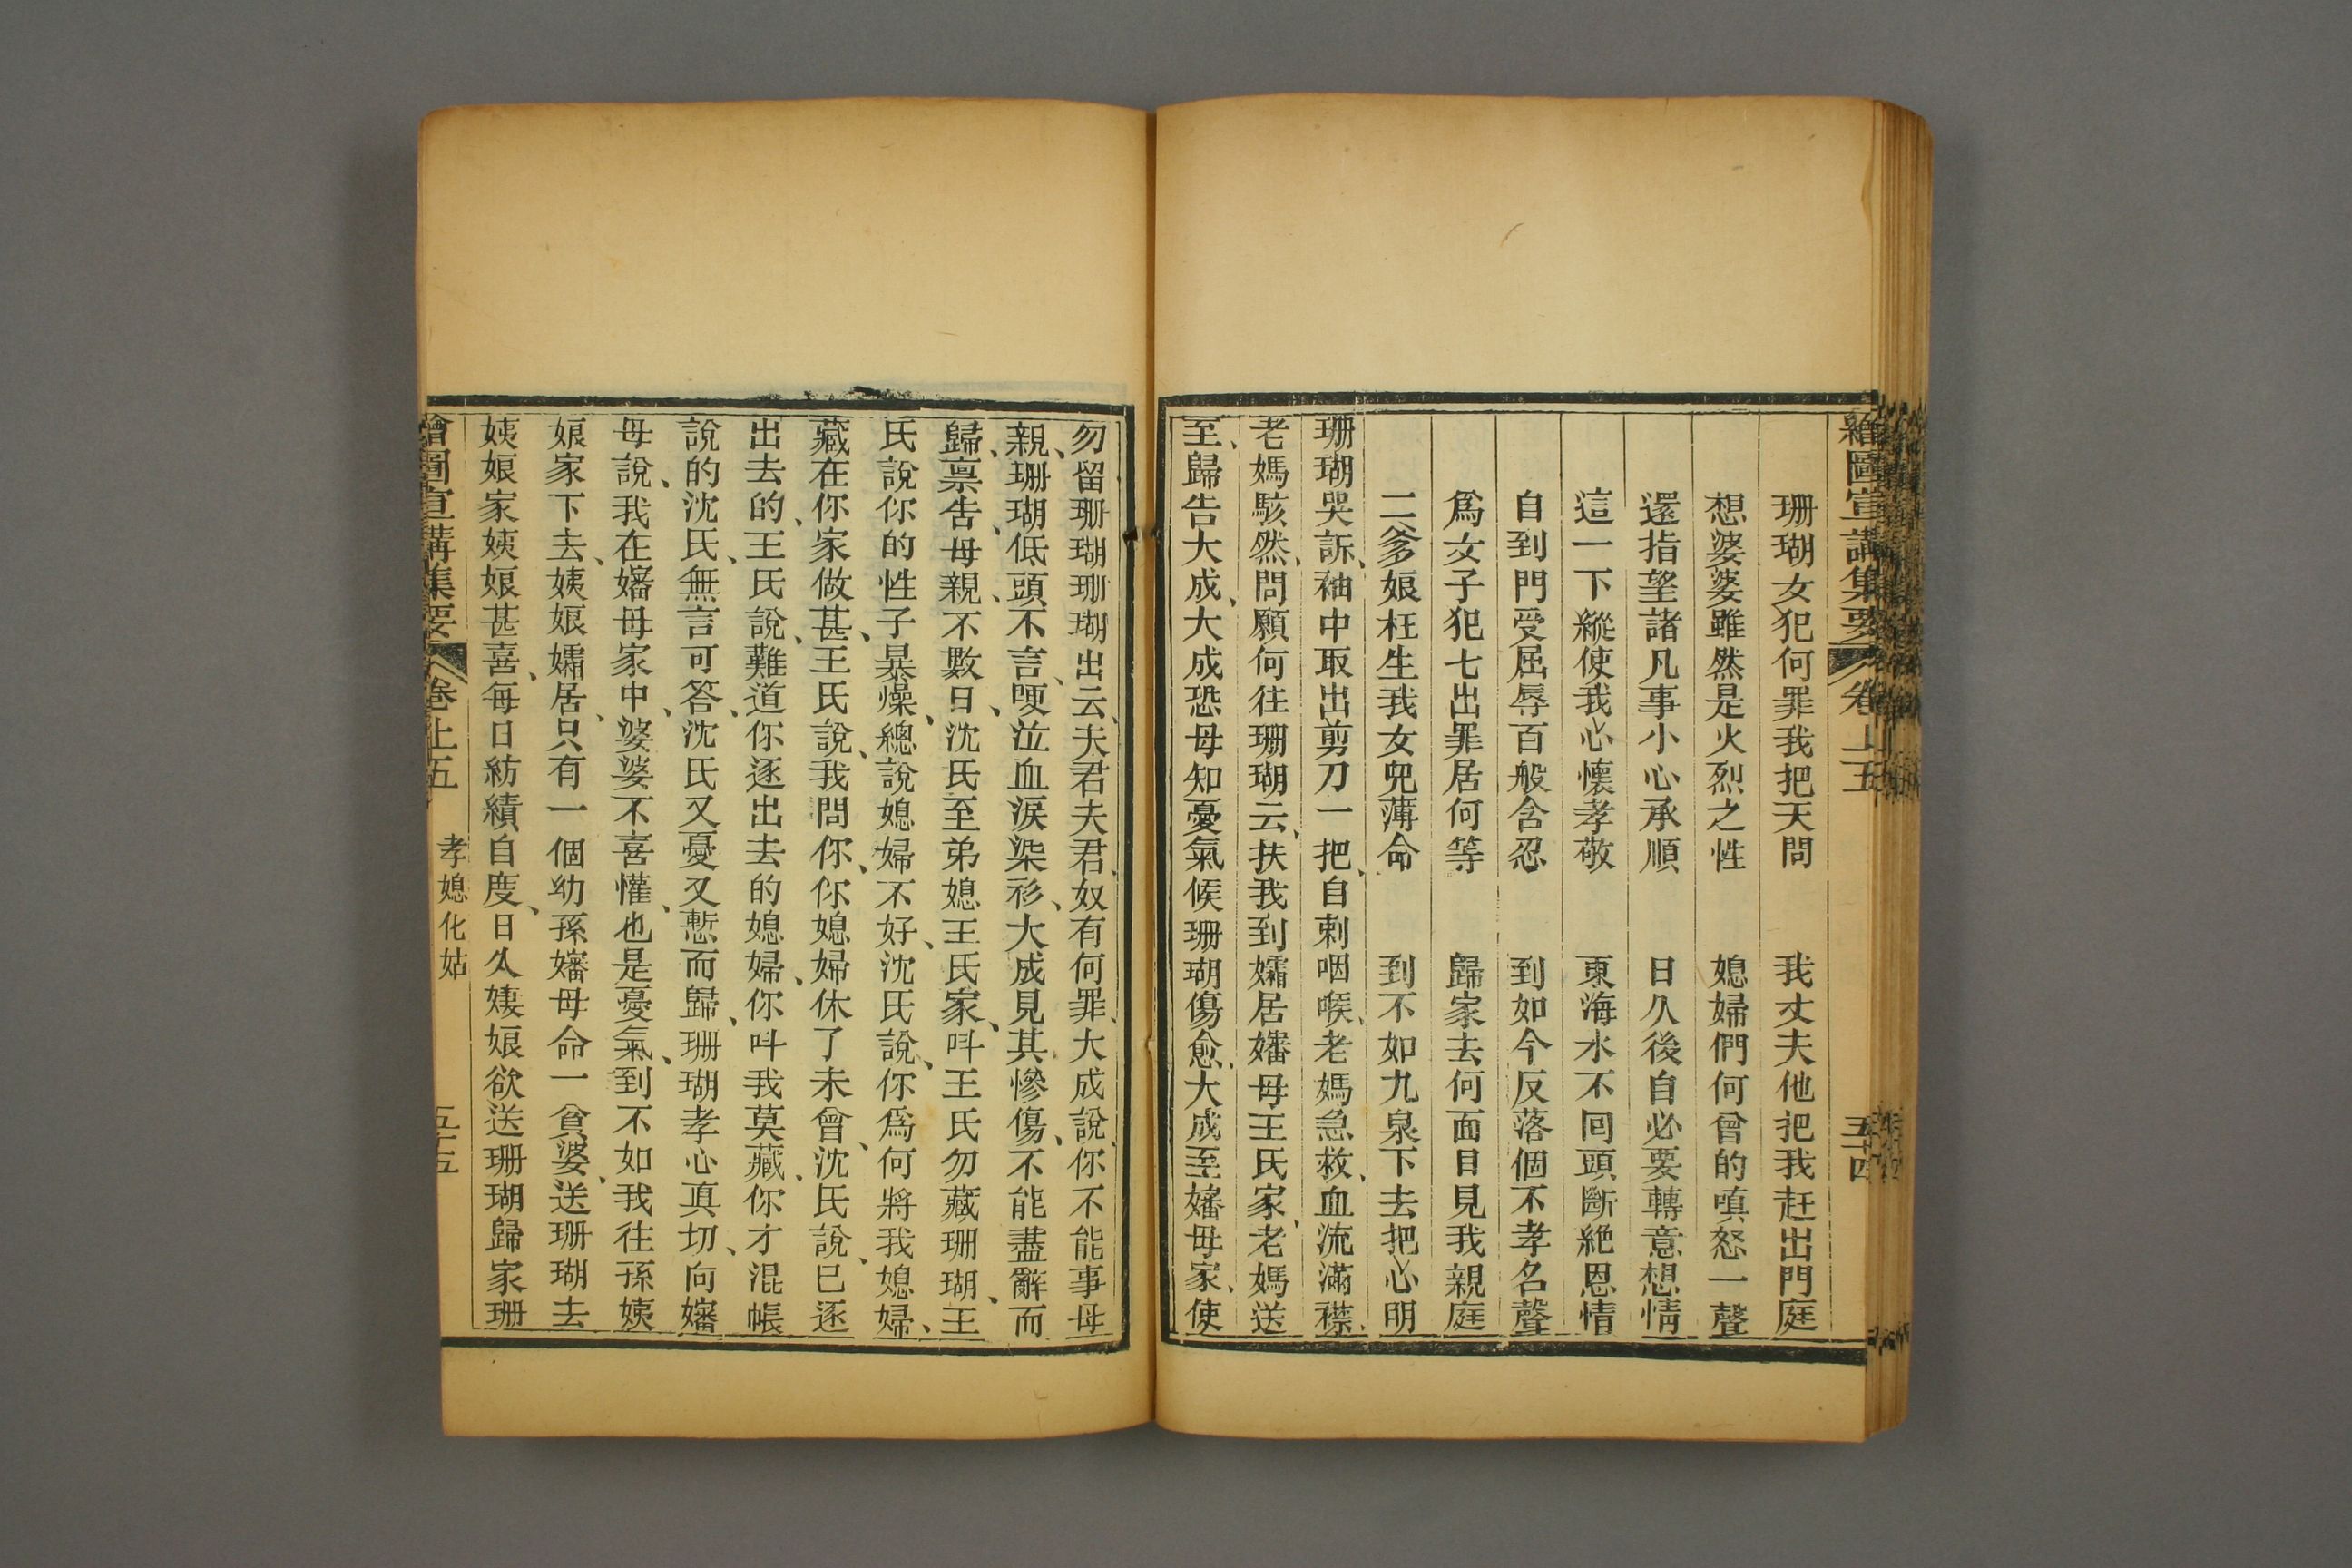 繪圖宣講集要 卷上五 五十四
珊瑚女犯何罪我把天問 我丈夫他把我赶出門庭
想婆婆雖然是火烈之性 媳婦們何曾的嗔怒一聲
還指望諸凡事小心承順 日久後自必要轉意想情
這一下縱使我心懷孝敬 東海水不囘頭斷絶恩情
自到門受屈辱百般含忍 到如今反落個不孝名聲
爲女子犯七出罪居何等 歸家去何面目見我親庭
二爹娘枉生我女兒薄命 到不如九泉下去把心明
珊瑚哭訴、袖中取出剪刀一把、自剌咽喉、老媽急救、血流滿襟、
老媽駭然、問願何往珊瑚云、扶我到孀居嬸母王氏家、老媽送
至、歸告大成、大成恐母知憂氣候珊瑚傷愈、大成至嬸母家、使
勿留珊瑚珊瑚出云、夫君夫君、奴有何罪、大成說、你不能事母
親、珊瑚低頭不言、哽泣血淚染衫、大成見其慘傷、不能盡辭而
歸、禀告母親、不數日、沈氏至弟媳王氏家、呌王氏勿藏珊瑚、王
氏說你的性子暴燥、總說媳婦不好、沈氏說、你爲何將我媳婦、
藏在你家做甚、王氏說、我問你、你媳婦休了未曾、沈氏說、巳逐
出去的、王氏說、難道你逐出去的媳婦、你呌我莫藏、你才混帳
說的沈氏、無言可答、沈氏又憂又慙而歸、珊瑚孝心真切、向嬸
母說、我在嬸母家中、婆婆不喜懽、也是憂氣、到不如我往孫姨
娘家下去、姨娘孀居、只有一個幼孫嬸母命一貧婆、送珊瑚去
姨娘家姨娘甚喜、每日紡績自度、日久姨娘欲送珊瑚歸家珊
繪圖宣講集要 卷上五 孝媳化姑 五十五